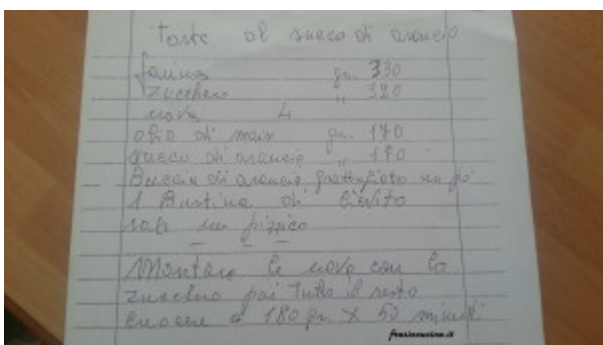 Torta al succo di arancio
farina gr. 330
zucchero " 320
uova 4
olio di mais gr. 170
succo di arancio " 170
Buccia di arancio grattugiato un pò
1 Bustina di lievito
sale un pizzico
Montare le uova con lo
zucchero poi tutto il resto
cuocere a 180 gr. x 50 minuti
frasincucina.it